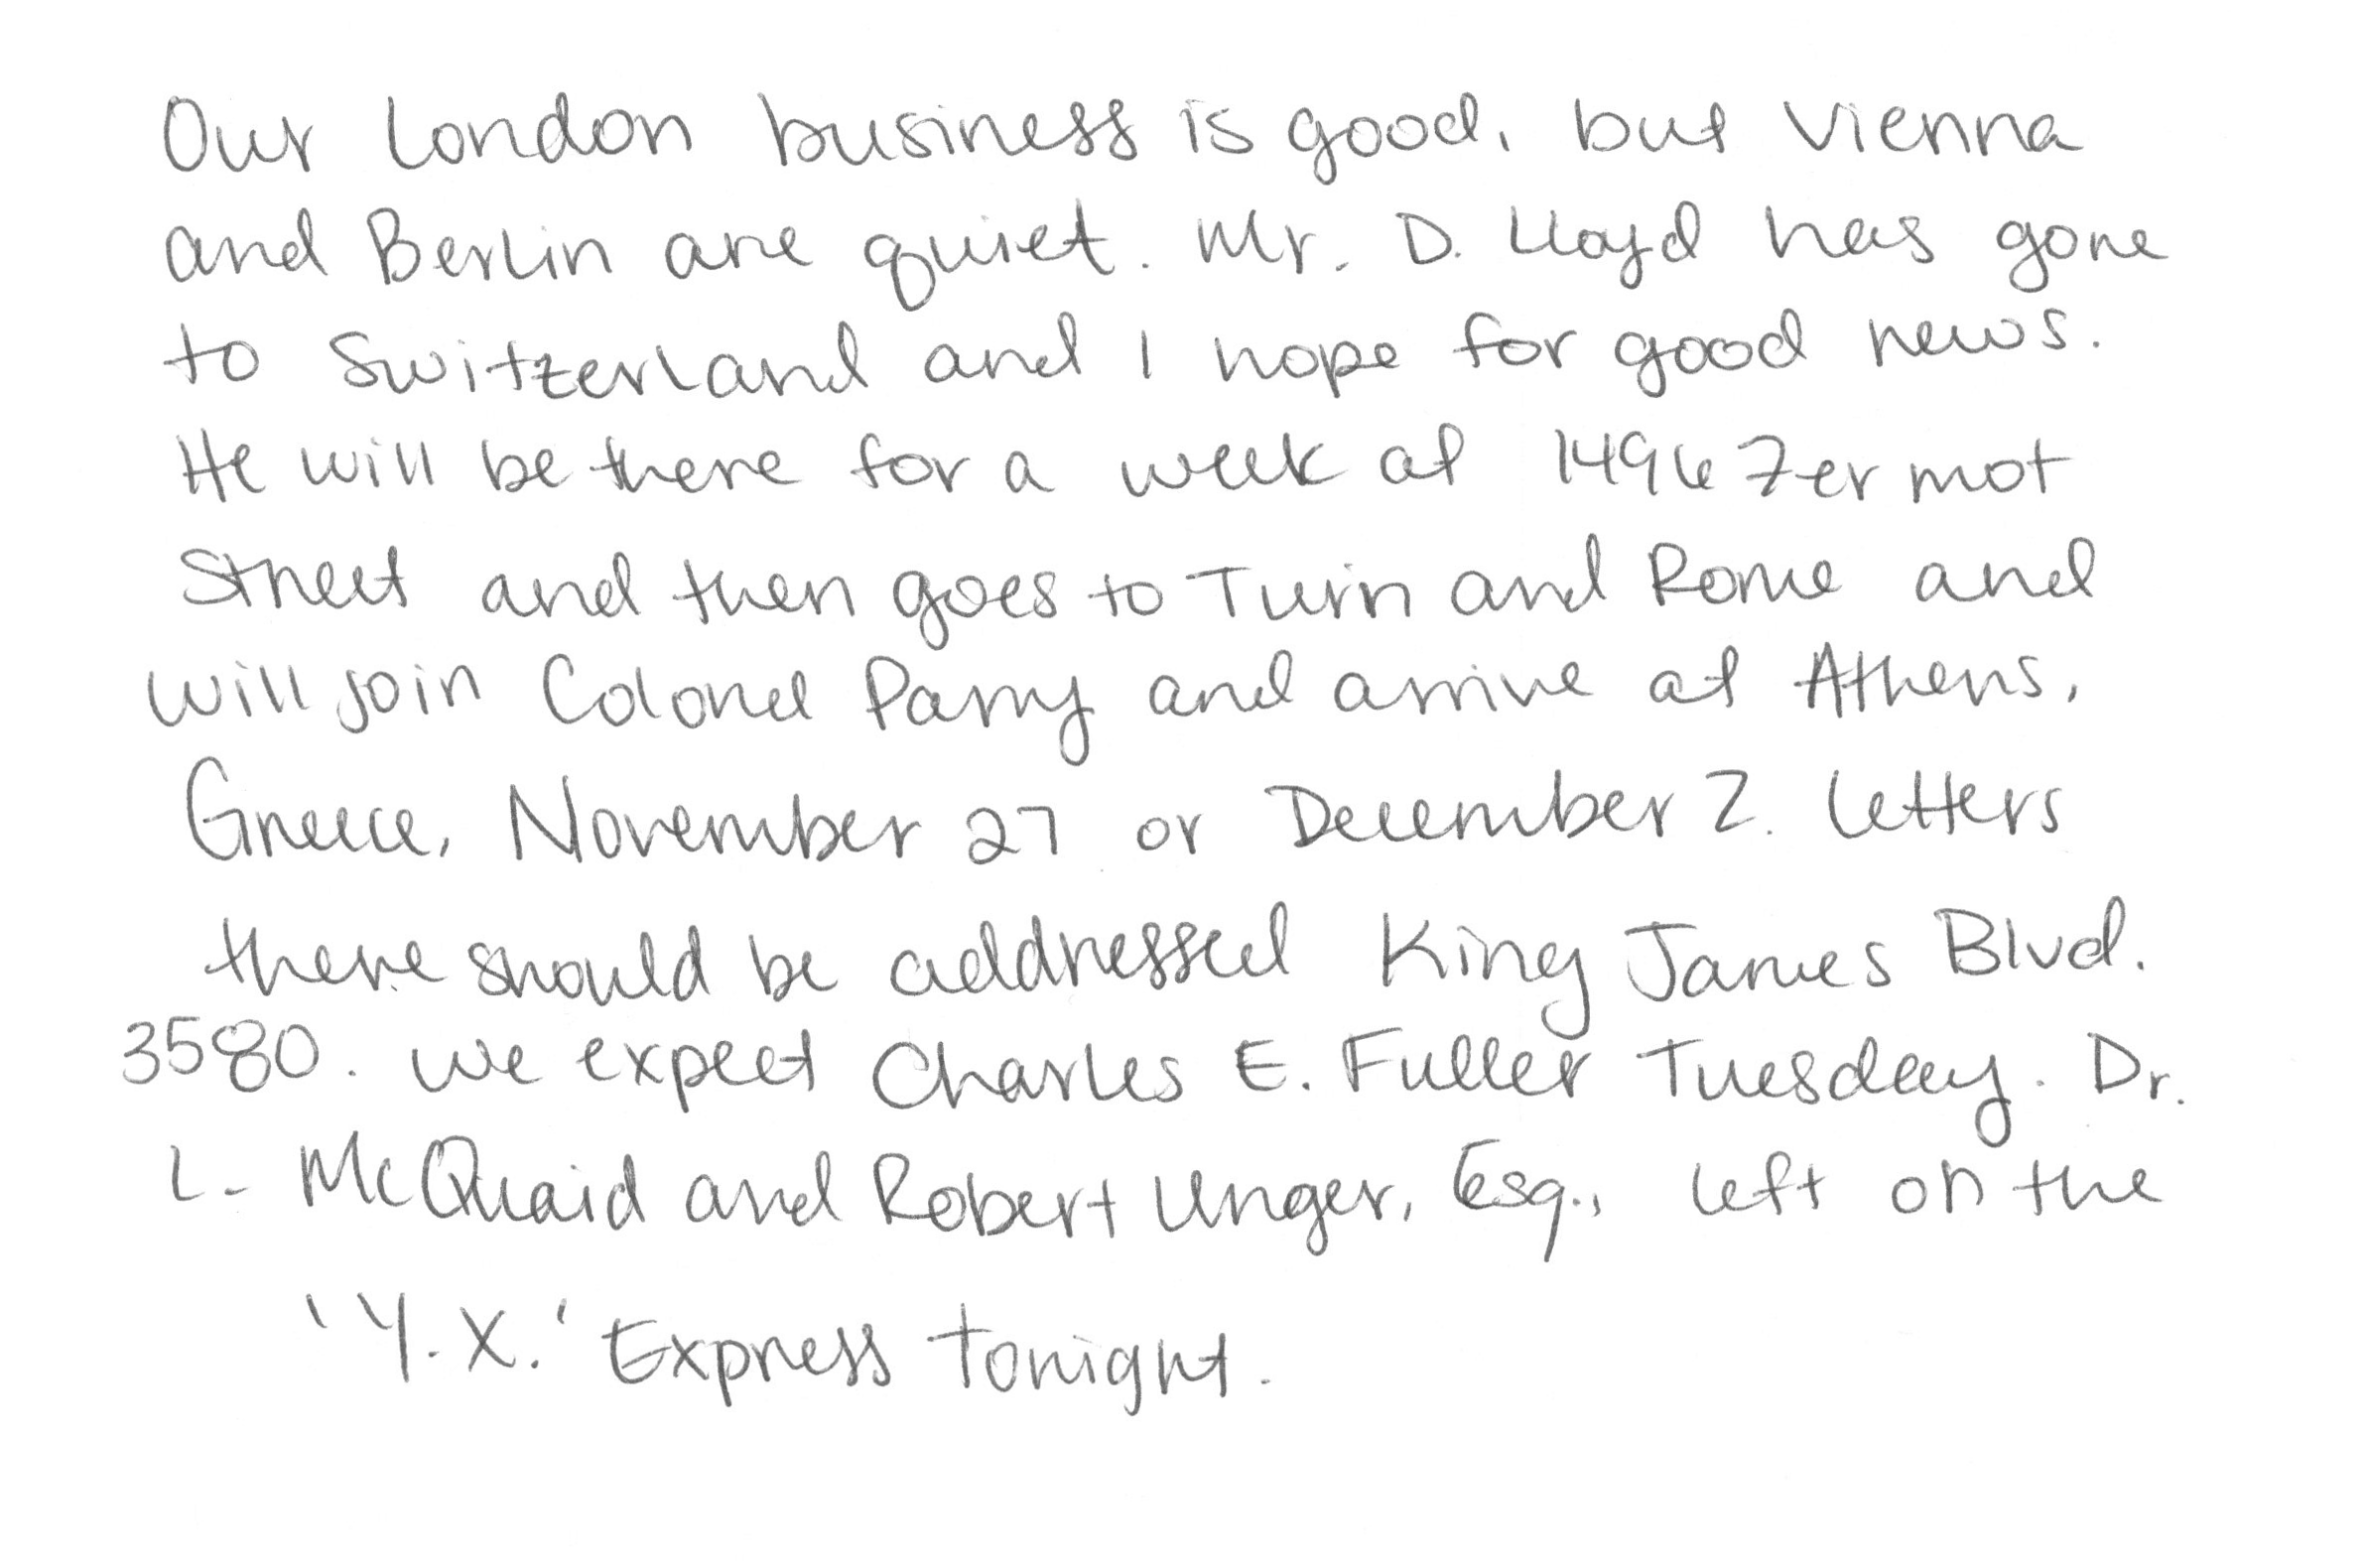 Our London business is good, but Vienna
and Berlin are quiet. Mr. D. Lloyd has gone
to Switzerland and I hope for good news.
He will be there for a week at 1496 Zermot
Street and then goes to Turin and Rome and
will join Colonel Parry and arrive at Athens,
Greece, November 27 or December 2. Letters
there should be addressed King James Blvd.
3580. We expect Charles E. Fuller Tuesday. Dr.
L. McQuaid and Robert Unger, Esq., left on the
'Y.X.' Express tonight.